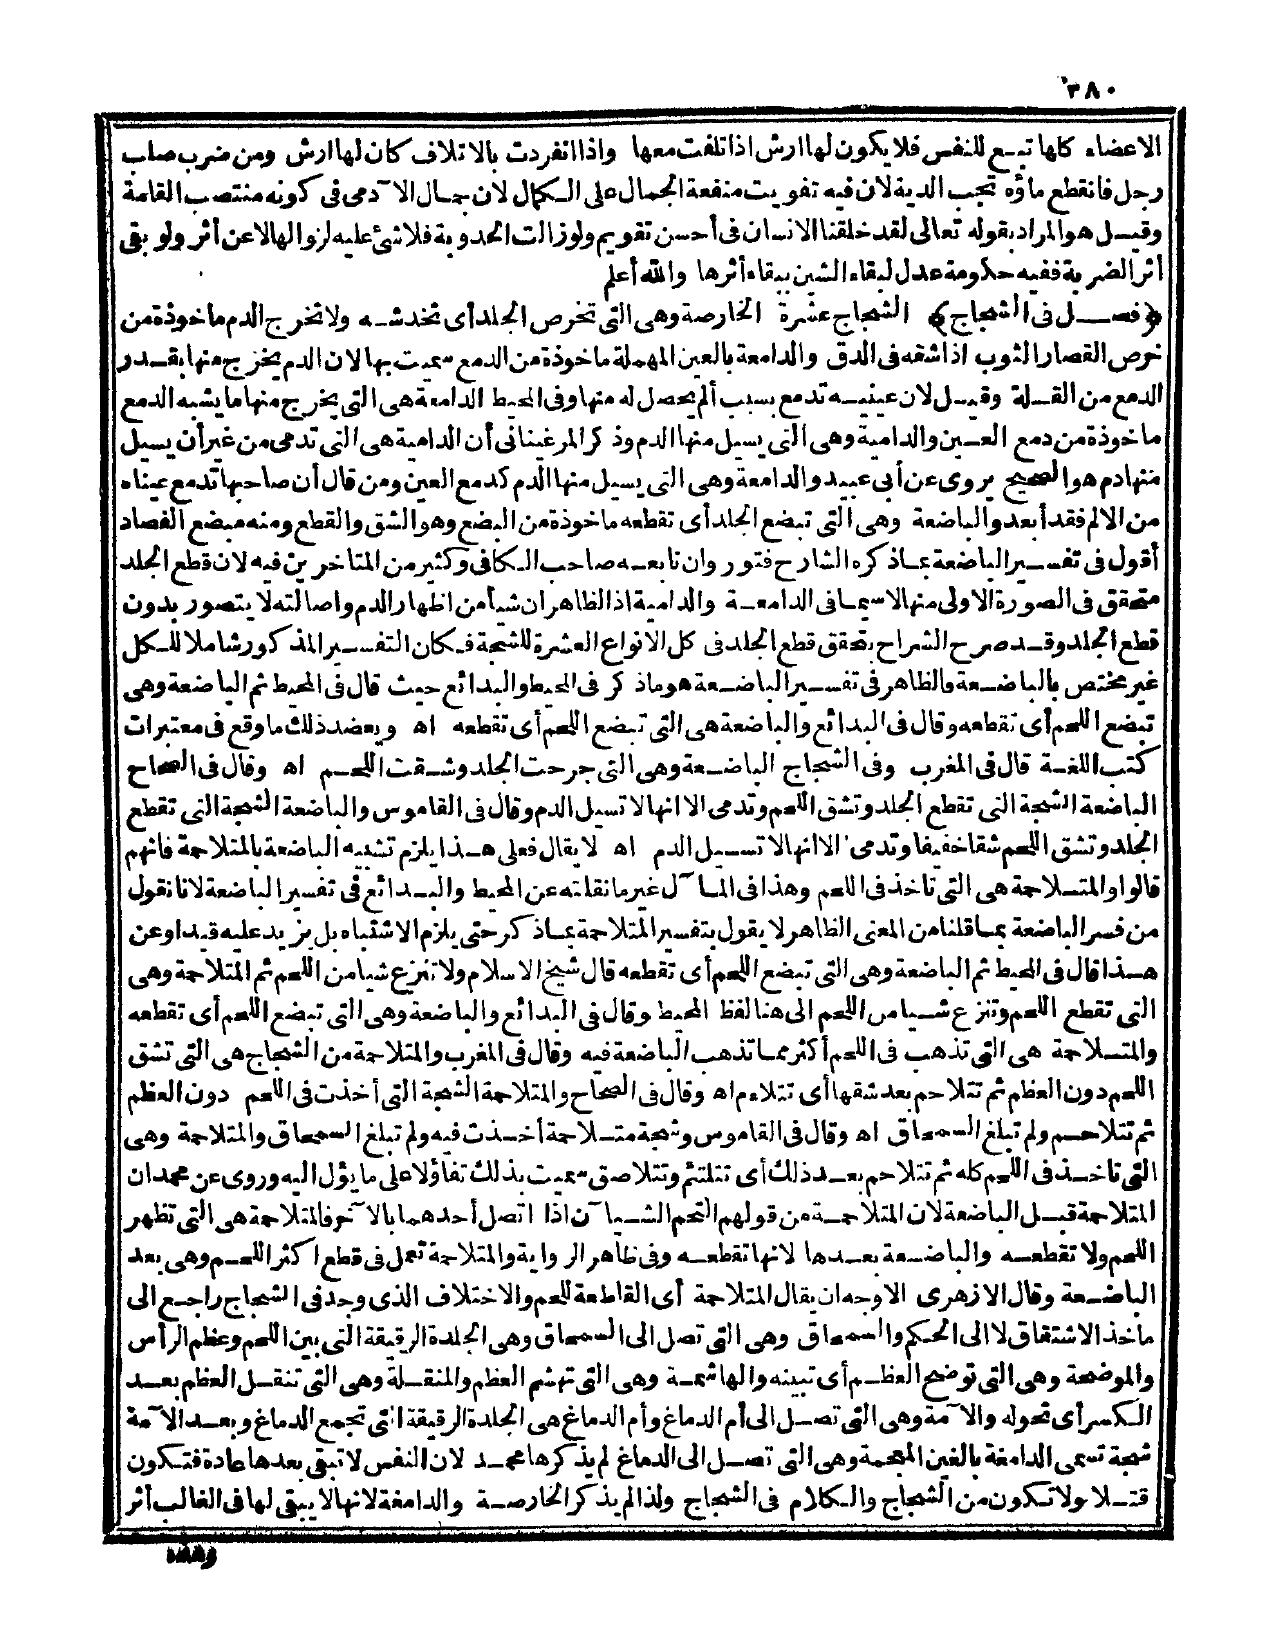 ٣٨٠
الاعضاء كلها تبع للنفس فلا يكون لها ارش اذا تلفت معها واذا انفردت بالاتلاف كان لها ارش ومن ضرب صلب
رجل فانقطع ماؤه تجب الدية لان فيه تفويت منفعة الجمال على الكمال لان جمال الآدمى فى كونه منتصب القامة
وقيل هو المراد بقوله تعالى لقد خلقنا الانسان فى أحسن تقويم ولو زالت الحدوبة فلا شئ عليه لزوالها لا عن أثر ولو بقى
أثر الضربة ففيه حكومة عدل لبقاء الشين ببقاء أثرها والله أعلم
﴿فصل فى الشجاج﴾ الشجاج عشرة الخارصة وهى التى تخرص الجلد أى تخدشه ولا تخرج الدم ماخوذة من
خرص القصار الثوب اذا شقه فى الدق والدامعة بالعين المهملة ماخوذة من الدمع سميت بها لان الدم يخرج منها بقدر
الدمع من القلة وقيل لان عينيه تدمع بسبب ألم يحصل له منها وفى المحيط الدامعة هى التى يخرج منها ما يشبه الدمع
ماخوذة من دمع العين والدامية وهى التى يسيل منها الدم وذكر المرغينانى أن الدامية هى التى تدمى من غير أن يسيل
منها دم هو الصحيح يروى عن أبى عبيد والدامعة وهى التى يسيل منها الدم كدمع العين ومن قال أن صاحبها تدمع عيناه
من الالم فقد أبعد والباضعة وهى التى تبضع الجلد أى تقطعه ماخوذة من البضع وهو الشق والقطع ومنه مبضع الفصاد
أقول فى تفسير الباضعة بما ذكره الشارح فتور وان تابعه صاحب الكافى وكثير من المتاخرين فيه لان قطع الجلد
متحقق فى الصورة الاولى منها لا سيما فى الدامعة والدامية اذ الظاهر ان شيأ من اظهار الدم واسالته لا يتصور بدون
قطع الجلد وقد صرح الشراح بتحقق قطع الجلد فى كل الانواع العشرة للشجة فكان التفسير المذكور شاملا للكل
غير مختص بالباضعة والظاهر فى تفسير الباضعة هو ماذكر فى المحيط والبدائع حيث قال فى المحيط ثم الباضعة وهى
تبضع اللحم أى تقطعه وقال فى البدائع والباضعة هى التى تبضع اللحم أى تقطعه اه ويعضد ذلك ما وقع فى معتبرات
كتب اللغة قال فى المغرب وفى الشجاج الباضعة وهى التى جرحت الجلد وشقت اللحم اه وقال فى الصحاح
الباضعة الشجة التى تقطع الجلد وتشق اللحم وتدمى الا انها لا تسيل الدم وقال فى القاموس والباضعة الشجة التى تقطع
الجلد وتشق اللحم شقا خفيفا وتدمى الا انها لا تسيل الدم اه لا يقال فعلى هذا يلزم تشبيه الباضعة بالمتلاحمة فانهم
قالوا والمتلاحمة هى التى تاخذ فى اللحم وهذا فى المآل غير ما نقلته عن المحيط والبدائع فى تفسير الباضعة لانا نقول
من فسر الباضعة بما قلنا من المعنى الظاهر لا يقول بتفسير المتلاحمة بما ذكر حتى يلزم الاشتباه بل يزيد عليه قيدا وعن
هذا قال فى المحيط ثم الباضعة وهى التى تبضع اللحم أى تقطعه قال شيخ الاسلام ولا تنزع شيا من اللحم ثم المتلاحمة وهى
التى تقطع اللحم وتنزع شيا من اللحم الى هنا لفظ المحيط وقال فى البدائع والباضعة وهى التى تبضع اللحم أى تقطعه
والمتلاحمة هى التى تذهب فى اللحم أكثر مما تذهب الباضعة فيه وقال فى المغرب والمتلاحمة من الشجاج هى التى تشق
اللحم دون العظم ثم تتلاحم بعد شقها أى تتلاءم اه وقال فى الصحاح والمتلاحمة الشجة التى أخذت فى اللحم دون العظم
ثم تتلاحم ولم تبلغ السمحاق اه وقال فى القاموس وشجة متلاحمة أخذت فيه ولم تبلغ السمحاق والمتلاحمة وهى
التى تاخذ فى اللحم كله ثم تتلاحم بعد ذلك أى تلتئم وتتلاصق سميت بذلك تفاؤلا على ما يؤل اليه وروى عن محمد ان
المتلاحمة قبل الباضعة لان المتلاحمة من قولهم التحم الشيآن اذا اتصل أحدهما بالآخر فالمتلاحمة هى التى تظهر
اللحم ولا تقطعه والباضعة بعدها لانها تقطعه وفى ظاهر الرواية والمتلاحمة تعمل فى قطع اكثر اللحم وهى بعد
الباضعة وقال الازهرى الاوجه ان يقال المتلاحمة أى القاطعة للحم والاختلاف الذى وجد فى الشجاج راجع الى
ماخذ الاشتقاق لا الى الحكم والسمحاق وهى التى تصل الى السمحاق وهى الجلدة الرقيقة التى بين اللحم وعظم الرأس
والموضحة وهى التى توضح العظم أى تبينه والهاشمة وهى التى تهشم العظم والمنقلة وهى التى تنقل العظم بعد
الكسر أى تحوله والآمة وهى التى تصل الى أم الدماغ وأم الدماغ هى الجلدة الرقيقة التى تجمع الدماغ وبعد الآمة
شجة تسمى الدامغة بالغين المعجمة وهى التى تصل الى الدماغ لم يذكرها محمد لان النفس لا تبقى بعدها عادة فتكون
قتلا ولا تكون من الشجاج والكلام فى الشجاج ولذا لم يذكر الخارصة والدامغة لانها لا يبقى لها فى الغالب أثر
وهذه